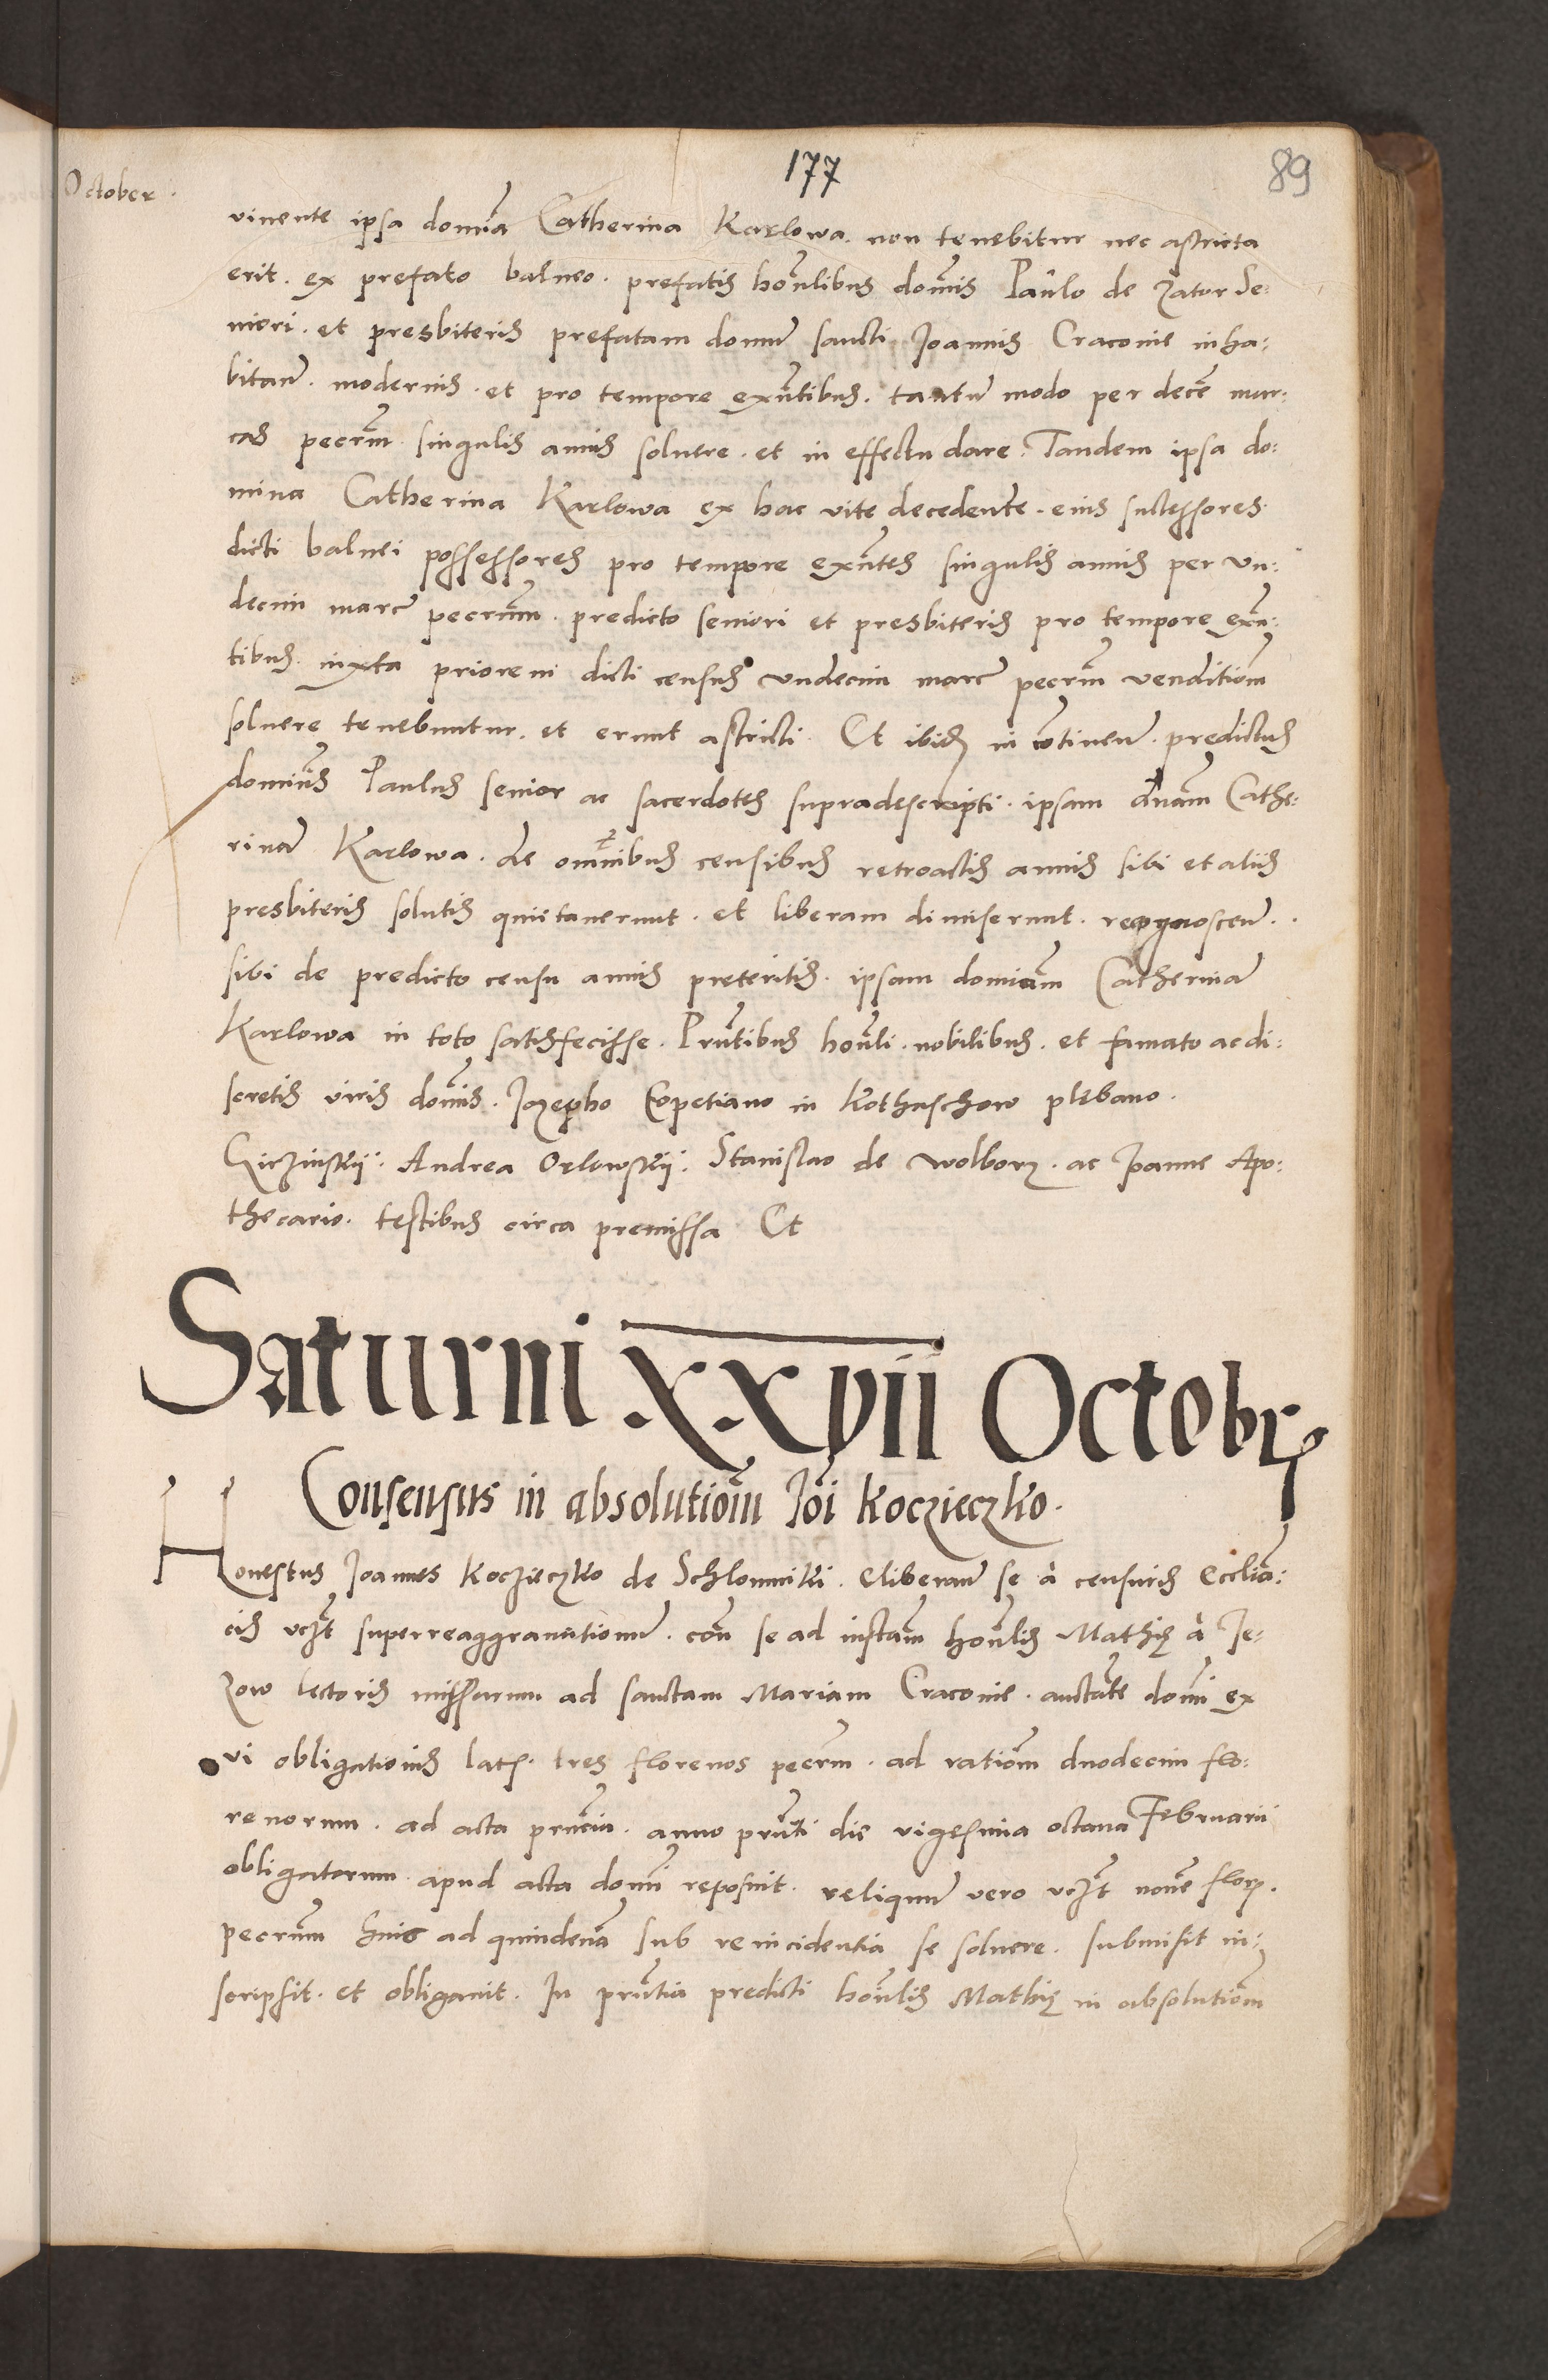 177
89
October.
vivente ipsa domīa Catherina Karlowa. non tenebitur nec astricta
erit. ex prefato balneo. prefatis honīlibus domīs Paulo de Zator Se:
niori. et presbiteris prefatam domū sancti Joannis Cracovie inha:
bitañ. modernis. et pro tempore exn̄tibus. tantū modo per decē mar:
cas pecrm̄. singulis annis solvere. et in effectu dare. Tandem ipsa do:
mina Catherina Karlowa ex hac vite decedente. eius successores
dicti balnei possessores pro tempore exn̄tes singulis annis per un:
decim marc pecrm̄. predicto seniori et presbiteris pro tempore exn̄:
tibus. iuxta priorem dicti census undecim marc pecrm̄ venditiom̄
solvere tenebuntur. et erunt astricti. Et ibid in cōtineñ. predictus
domins̄ Paulus senior ac sacerdotes supradescripti. ipsam dn̄am Cathe:
rinā Karlowa. de omnibus censibus retroactis annis sibi et aliis
presbiteris solutis quietaverunt. et liberam dimiserunt. recognosceñ.
sibi de predicto censu annis preteritis. ipsam domiam̄ Catherinā
Karlowa in toto satisfecisse. Prn̄tibus honīli. nobilibus. et famato ac di:
scretis viris domīs. Jozepho Copetiano in Kothuschow plebano.
Girzinskij. Andrea Orlowskij. Stanislao de Wolborz. ac Joanne Apo:
thecario. testibus circa premissa Et
Saturni XXVII Octobr
Consensus in absolutiom̄ Joi Koczieczko.
Honestus Joannes Koczieczko de Schlomniki. eliberañ se à censuris eccliā:
cis vczt superreaggravationū. con̄ se ad instam̄ honīlis Mathię à Je:
zow lectoris missarum ad sanctam Mariam Cracovie. auctate domī ex
vi obligationis lat. tres florenos pecrm̄. ad ratiom̄ duodecim flo:
renorum. ad acta prn̄cia. anno prn̄ti die vigesima octava Februarii
obligatorum apud acta domī reposuit. reliquū vero vczt novē flor.
pecrm̄ hinc ad quindenā sub reincidentia se solvere. submisit in:
scripsit. et obligavit. In prn̄tia predicti honīlis Mathię in absolutiom̄